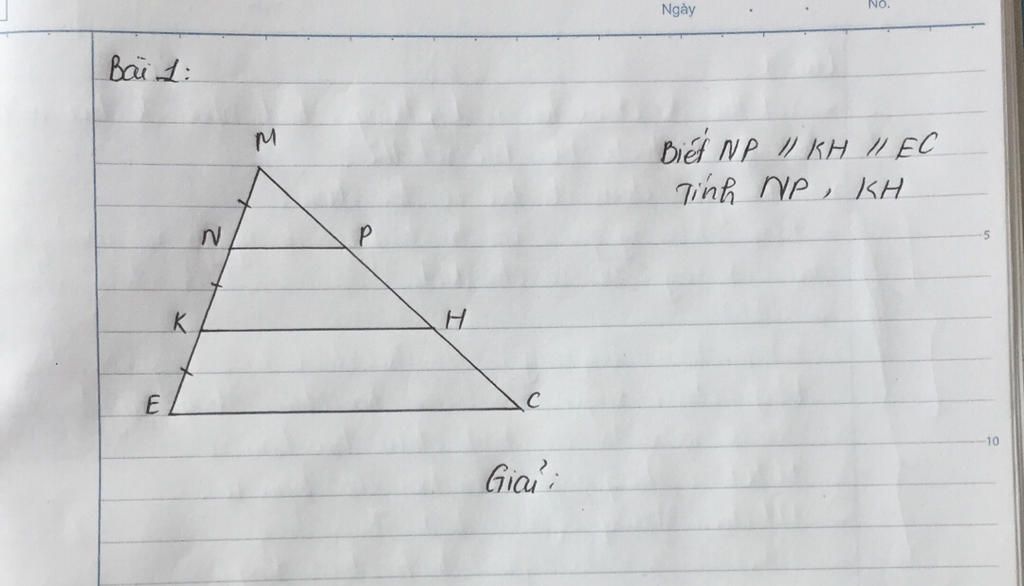 Ngày
No.
Bài 1:
M
Biết NP // KH // EC
Tính NP, KH
N
P
5
K
H
E
C
10
Giải: